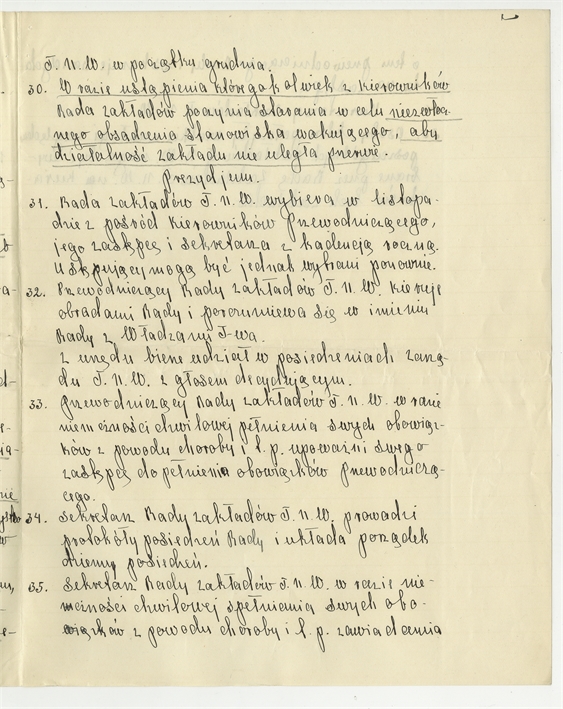 T. N. W. w początku grudnia.
30. W razie ustąpienia któregokolwiek z Kierowników
Rada Zakładów poczynia starania w celu niezwłocz-
nego obsadzenia stanowiska wakującego, aby
działalność Zakładu nie uległa przerwie.
Prezydjum.
31. Rada Zakładów T. N. W. wybiera w listopa-
dzie z pośród Kierowników Przewodniczącego,
jego zastępcę i sekretarza z kadencją roczną.
Ustępujący mogą być jednak wybrani ponownie.
32. Przewodniczący Rady Zakładów T. N. W. kieruje
obradami Rady i porozumiewa się w imieniu
Rady z Władzami T-wa.
Z urzędu bierze udział w posiedzeniach Zarzą-
du T. N. W. z głosem decydującym.
33. Przewodniczący Rady Zakładów T. N. W. w razie
niemożności chwilowej pełnienia swych obowiąz-
ków z powodu choroby i t. p. upoważni swego
zastępcę do pełnienia obowiązków Przewodniczą-
cego.
34. Sekretarz Rady Zakładów T. N. W. prowadzi
protokóły posiedzeń Rady i układa porządek
dzienny posiedzeń.
35. Sekretarz Rady Zakładów T. N. W. w razie nie-
możności chwilowej spełniania swych obo-
wiązków z powodu choroby i t. p. zawiadamia